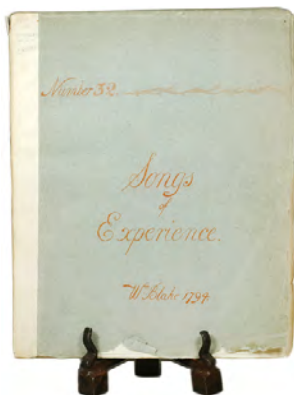 Number 32
Songs
of
Experience.
Wm Blake 1794